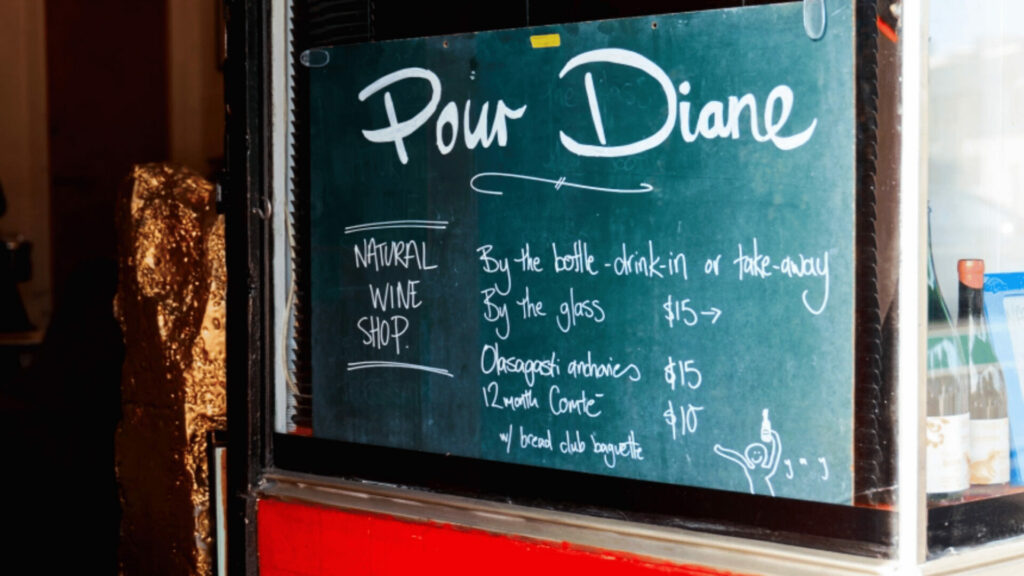 Pour Diane
NATURAL
WINE
SHOP.
By the bottle - drink-in or take-away
By the glass $15→
Olasagasti anchovies $15
12 month Comté $10
w/ bread club baguette